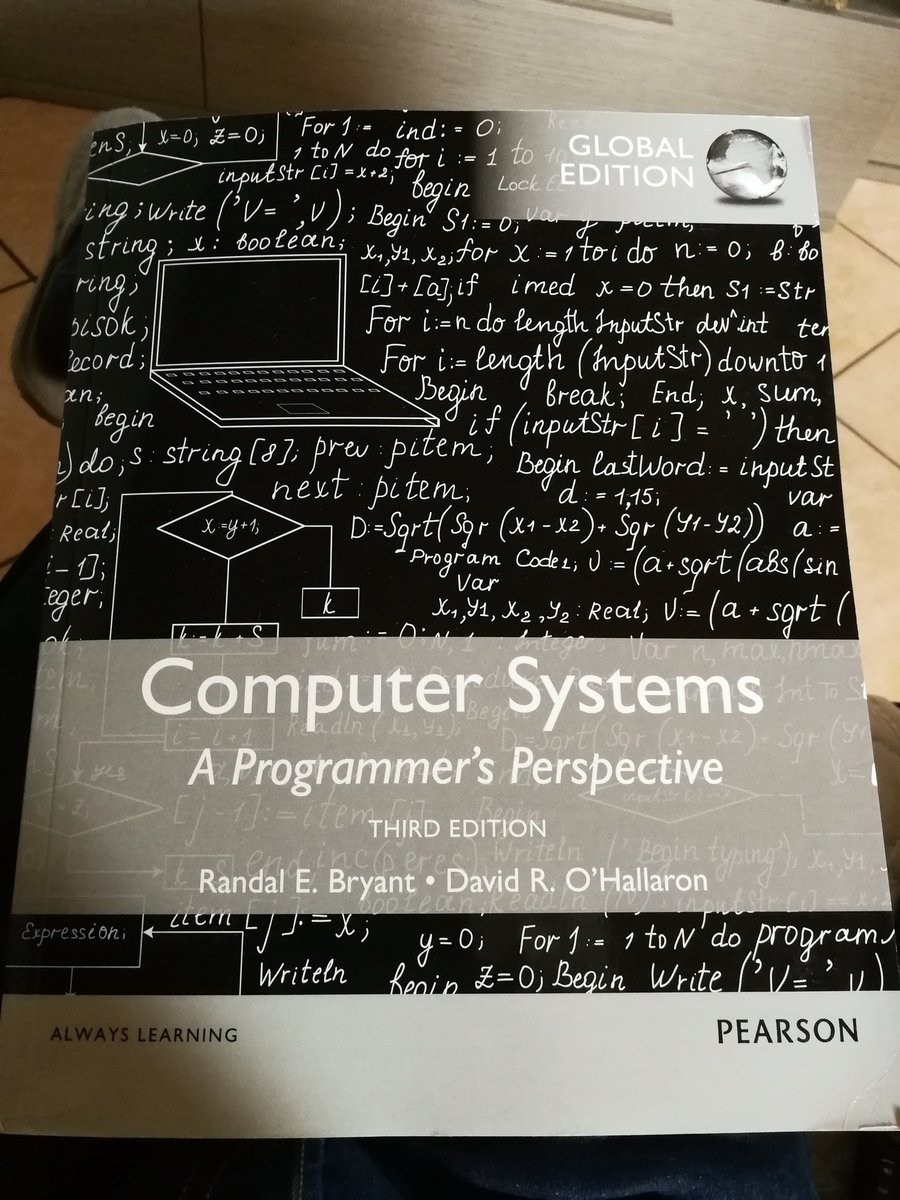 GLOBAL
EDITION
enS; x=0; z=0; For 1:= ind:= 0;
1 to N do for i := 1 to
inputStr [i] = x+2; begin Lock
ing; Write ('V= ',v); Begin S1:=0; var
string; x: boolean; x1,y1, x2; for x := 1 to i do n:= 0; b: bo
ring; [i]+[a]; if imed x=0 then S1 :=Str
oisOk; For i:=n do length InputStr dev^int ter
ecord; For i:= length (InputStr) downto 1
an; Begin break; End; x, sum,
begin if (inputStr[i] = ' ') then
) do; s: string [8]; prev: pitem; Begin lastWord:= inputSt
r[i]; next: pitem; d:=1,15; var
Real; x:=y+1; D:=Sqrt(Sqr (x1-x2)+ Sqr (y1-y2)) a:=
i-1]; Program Code1; U:=(a+sqrt(abs(sin
eger; k Var
x1,y1, x2,y2: Real; V:=(a + sqrt (
k:=k+S
Computer Systems
A Programmer's Perspective
THIRD EDITION
Randal E. Bryant • David R. O'Hallaron
Expression; item [j]:=x; y=0; For 1:= 1 to N do program
Writeln begin z=0; Begin Write ('V= ', v)
ALWAYS LEARNING
PEARSON